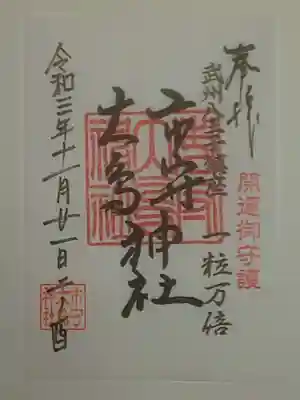 奉拝
開運御守護
武州八王子鎮座 一粒万倍
市守神社
大鳥神社
令和三年十一月廿一日 二の酉